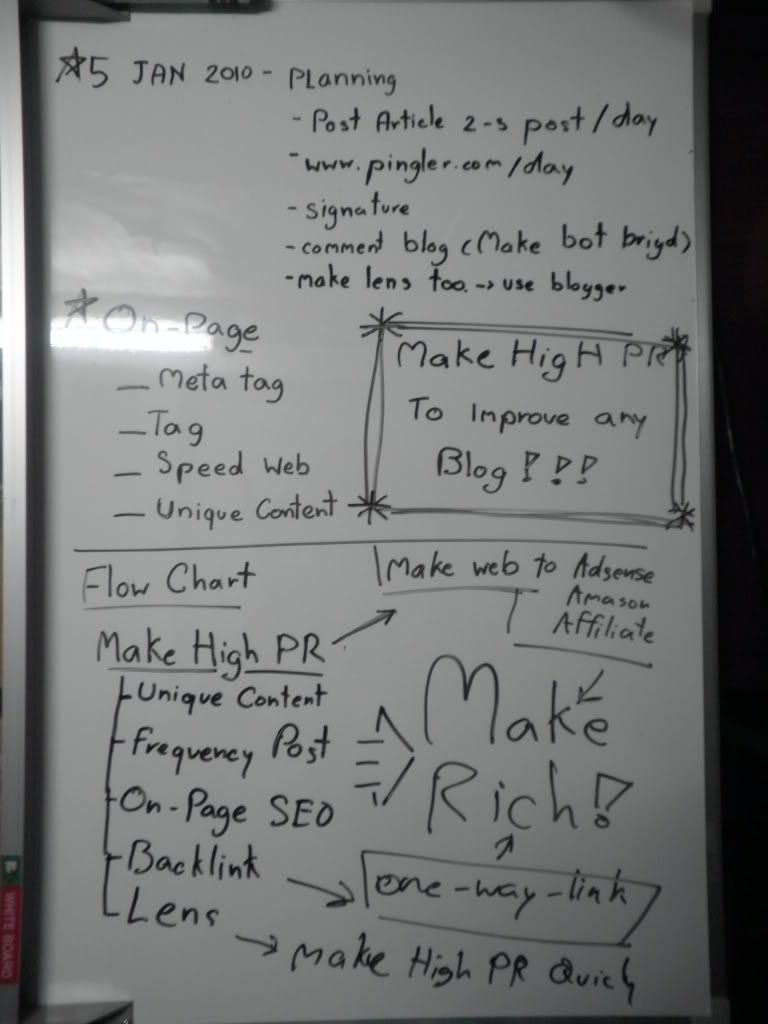 ☆5 JAN 2010 - Planning
- Post Article 2-3 post/day
- www.pingler.com/day
- signature
- comment blog (Make bot brigd)
- make lens too. → use blogger
☆ On-Page
— Meta tag
— Tag
— Speed Web
— Unique Content
Make High PR
To Improve any
Blog!!!
Flow Chart
Make web to Adsense
Amason
Affiliate
Make High PR
Unique Content
Frequency Post
On-Page SEO
Backlink
Lens
Make
Rich!
one-way-link
Make High PR Quich
WHITE BOARD